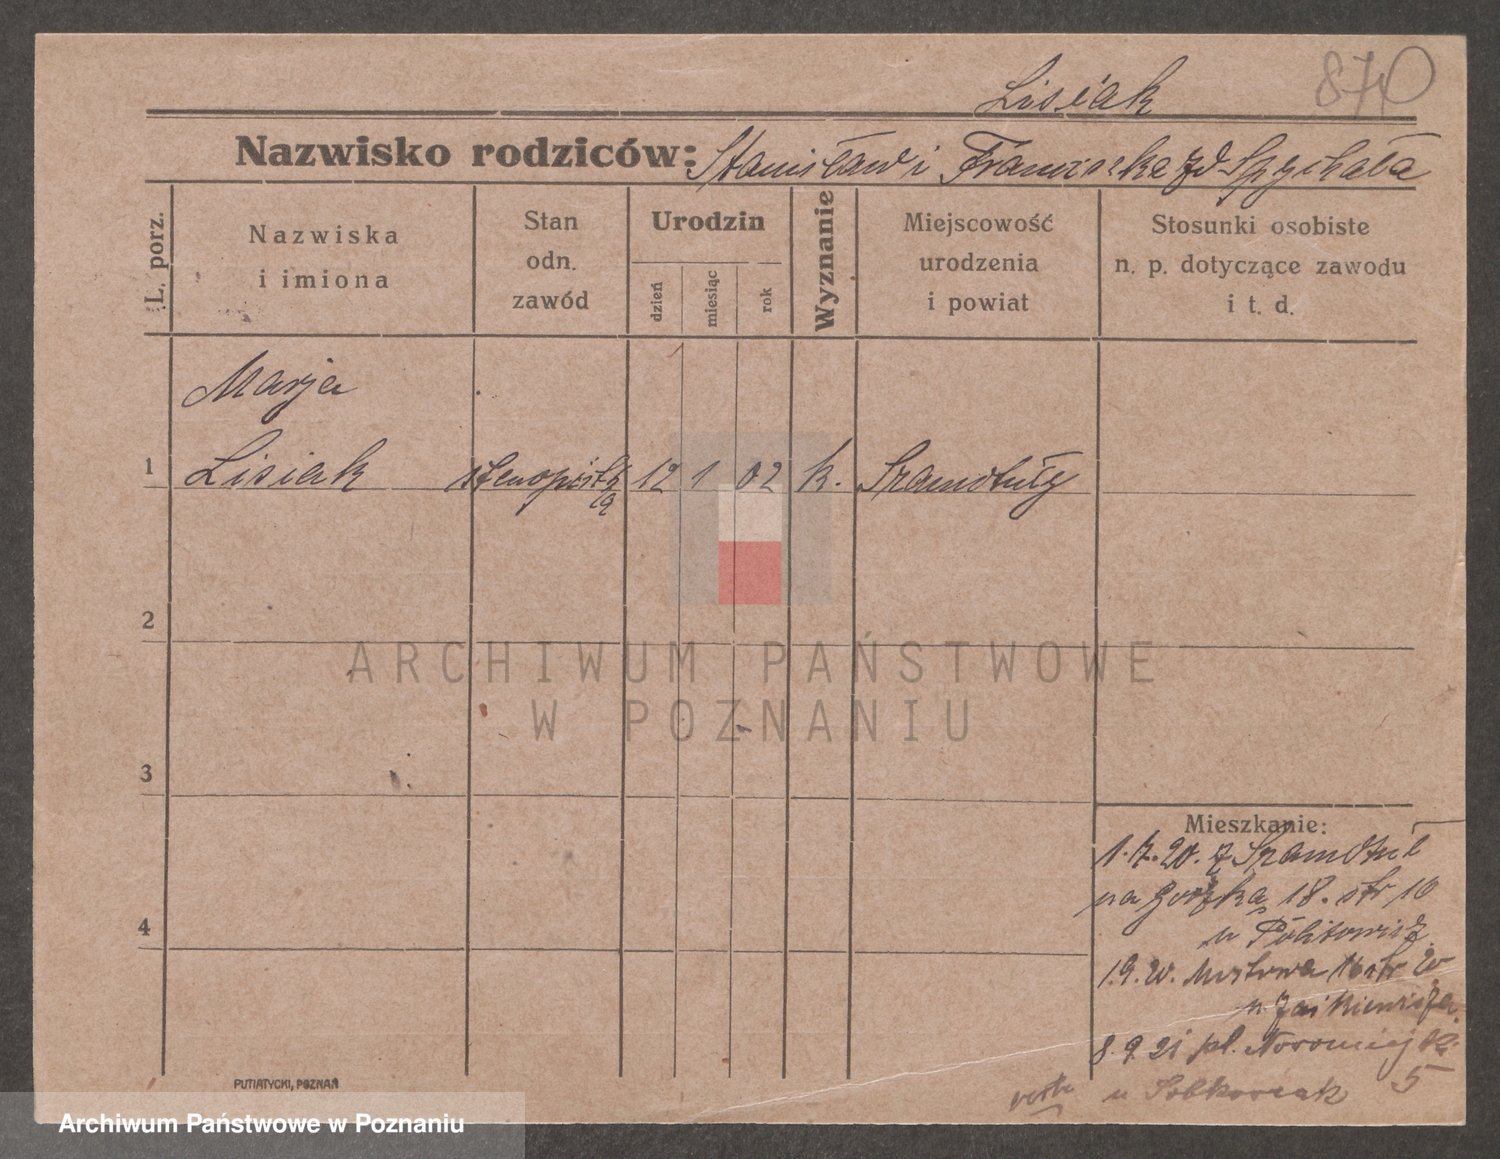 Lisiak 870
Nazwisko rodziców: Stanisław i Franciszka zd Spychała
L. porz.
Nazwiska
i imiona
Stan
odn.
zawód
Urodzin
dzień
miesiąc
rok
Wyznanie
Miejscowość
urodzenia
i powiat
Stosunki osobiste
n. p. dotyczące zawodu
i t. d.
Marja
1 Lisiak stenopistk 12 1 02 k. Szamotuły
a
2
ARCHIWUM PAŃSTWOWE
W POZNANIU
3
Mieszkanie:
1.7.20. z Szamotuł
na 18. str 10
u
1.9.20. 16 str 20
u
8.9.21 pl. Nowomiejski
u 5
PUTIATYCKI, POZNAŃ
Archiwum Państwowe w Poznaniu